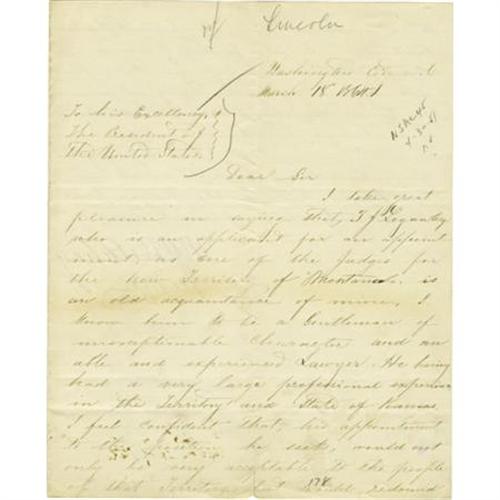 Lincoln
Washington City
March 18 1864
To his Excellency
The President of
the United States
Dear Sir
I take great
pleasure in saying that,
who is an applicant for an appoint
ment, as one of the Judges for
the New Territory of Montana. is
an old acquaintance of mine, I
know him to be a Gentleman of
unexceptionable Character and an
able and experienced Lawyer. He having
had a very large professional experience
in the Territory and State of Kansas.
I feel confident that, his appointment
to the position he seeks, would not
only be very acceptable to the people
of that Territory, but would redound
178